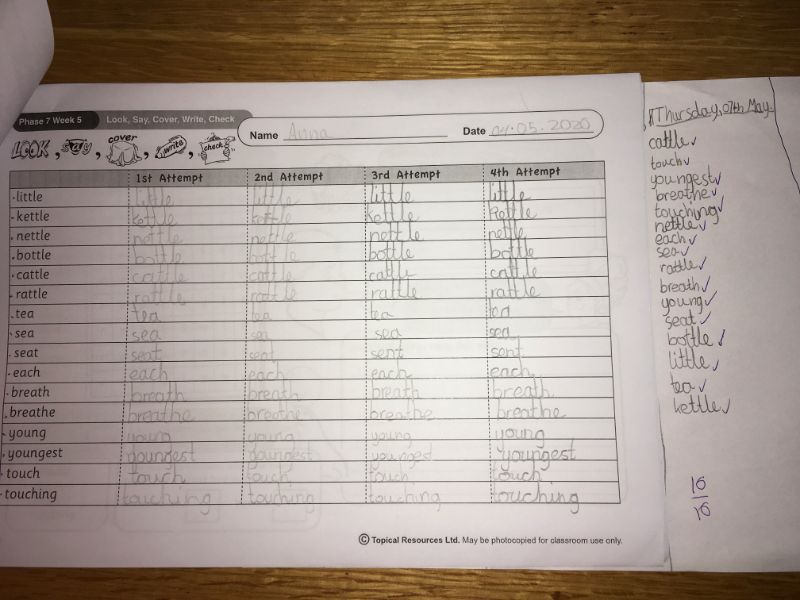 Phase 7 Week 5 Look, Say, Cover, Write, Check
LOOK, say, cover, write, check
Name Anna Date 04.05.2020
1st Attempt 2nd Attempt 3rd Attempt 4th Attempt
little little little little little
kettle kettle kettle kettle kettle
nettle nettle nettle nettle nettle
bottle bottle bottle bottle bottle
cattle cattle cattle cattle cattle
rattle rattle rattle rattle rattle
tea tea tea tea tea
sea sea sea sea sea
seat seat seat seat seat
each each each each each
breath breath breath breath breath
breathe breathe breathe breathe breathe
young young young young young
youngest youngest youngest younged youngest
touch touch touch touch touch
touching touching touching touching touching
© Topical Resources Ltd. May be photocopied for classroom use only.
Thursday, 07th May.
cattle ✓
touch ✓
youngest ✓
breathe ✓
touching ✓
nettle ✓
each ✓
sea ✓
rattle ✓
breath ✓
young ✓
seat ✓
bottle ✓
little ✓
tea ✓
kettle ✓
16
16